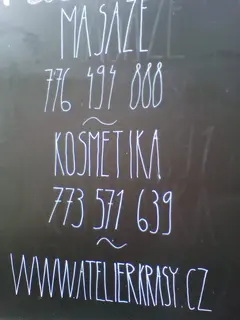 MASÁŽE
776 494 888
~
KOSMETIKA
773 571 639
~
WWW.ATELIERKRASY.CZ